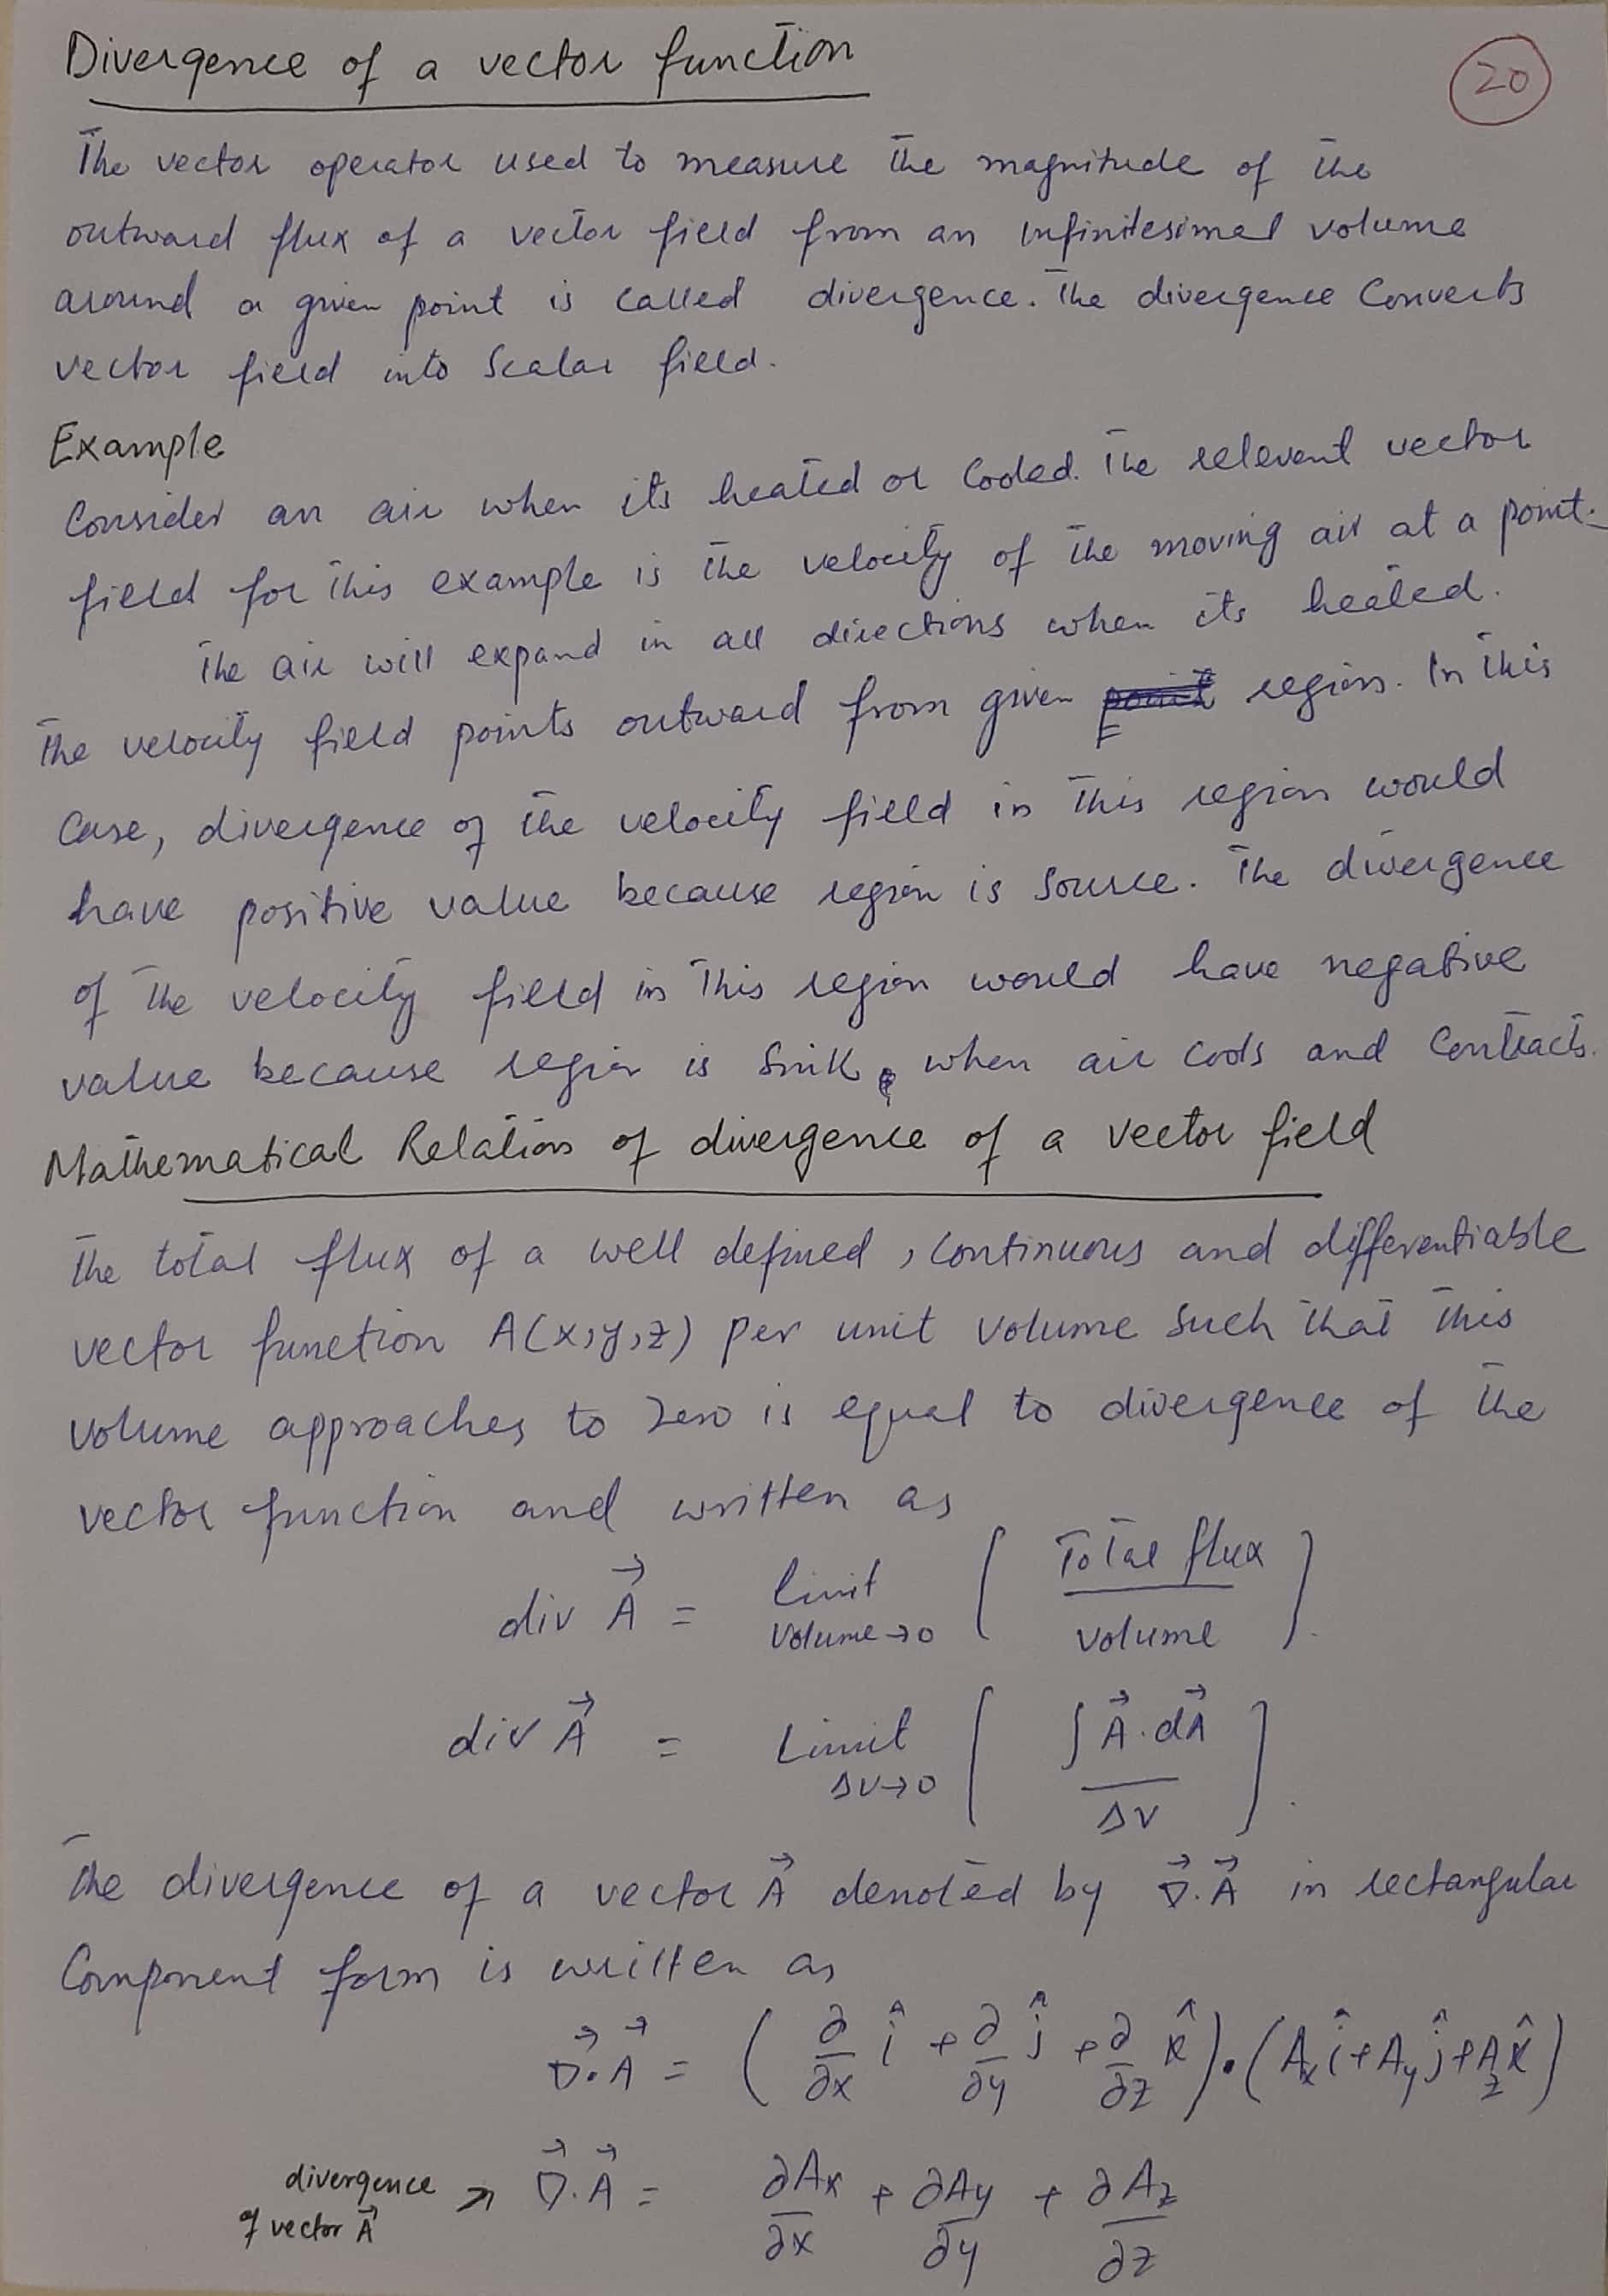 Divergence of a vector function
20
The vector operator used to measure the magnitude of the
outward flux of a vector field from an infinitesimal volume
around a given point is called divergence. The divergence converts
vector field into scalar field.
Example
Consider an air when its heated or cooled. The relevant vector
field for this example is the velocity of the moving air at a point.
The air will expand in all directions when its heated.
The velocity field points outward from given point region. In this
case, divergence of the velocity field in this region would
have positive value because region is source. The divergence
of the velocity field in this region would have negative
value because region is sink, when air cools and contracts.
Mathematical Relation of divergence of a vector field
The total flux of a well defined, continuous and differentiable
vector function A(x,y,z) per unit volume such that this
volume approaches to zero is equal to divergence of the
vector function and written as
div \vec{A} = limit_{volume→0} [ Total flux / volume ].
div \vec{A} = Limit_{ΔV→0} [ ∫ \vec{A}.d\vec{A} / ΔV ].
The divergence of a vector \vec{A} denoted by \vec{∇}.\vec{A} in rectangular
component form is written as
\vec{∇}.\vec{A} = ( ∂/∂x î + ∂/∂y ĵ + ∂/∂z k̂ ).( A_x î + A_y ĵ + A_z k̂ )
divergence of vector \vec{A} → \vec{∇}.\vec{A} = ∂A_x/∂x + ∂A_y/∂y + ∂A_z/∂z